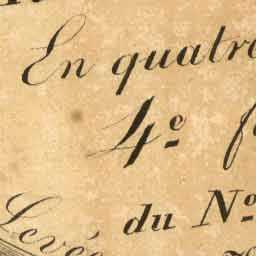 En quatr
4e f
du No
Levé